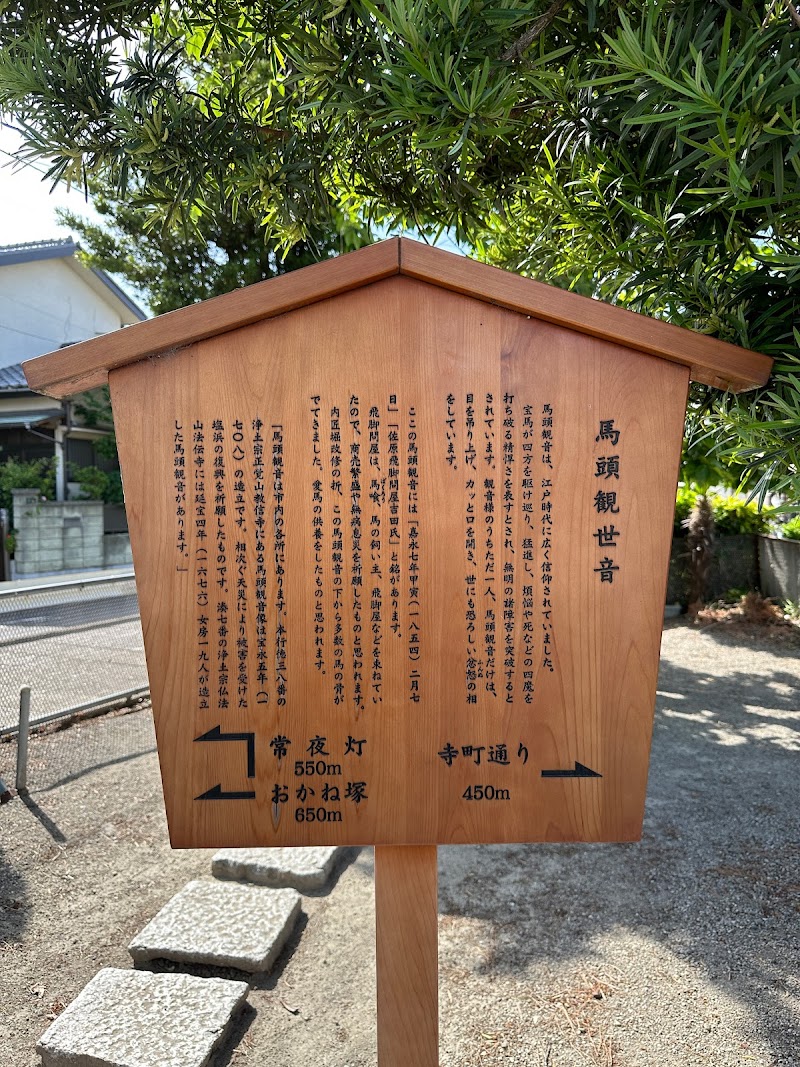 馬頭観世音
馬頭観音は、江戸時代に広く信仰されていました。
宝馬が四方を駆け巡り、猛進し、煩悩や死などの四魔を
打ち破る精悍さを表すとされ、無明の諸障害を突破すると
されています。観音様のうちただ一人、馬頭観音だけは、
目を吊り上げ、カッと口を開き、世にも恐ろしい忿怒の相
をしています。
ここの馬頭観音には「嘉永七年甲寅(一八五四)二月七
日」「佐原飛脚問屋吉田氏」と銘があります。
飛脚問屋は、馬喰、馬の飼い主、飛脚屋などを束ねてい
たので、商売繁盛や無病息災を祈願したものと思われます。
内匠堀改修の折、この馬頭観音の下から多数の馬の骨が
でてきました。愛馬の供養をしたものと思われます。
「馬頭観音は市内の各所にあります。本行徳三八番の
浄土宗正覚山教信寺にある馬頭観音像は宝永五年(一
七〇八)の造立です。相次ぐ天災により被害を受けた
塩浜の復興を祈願したものです。湊七番の浄土宗仏法
山法伝寺には延宝四年(一六七六)女房一九人が造立
した馬頭観音があります。」
常夜灯
550m
おかね塚
650m
寺町通り
450m